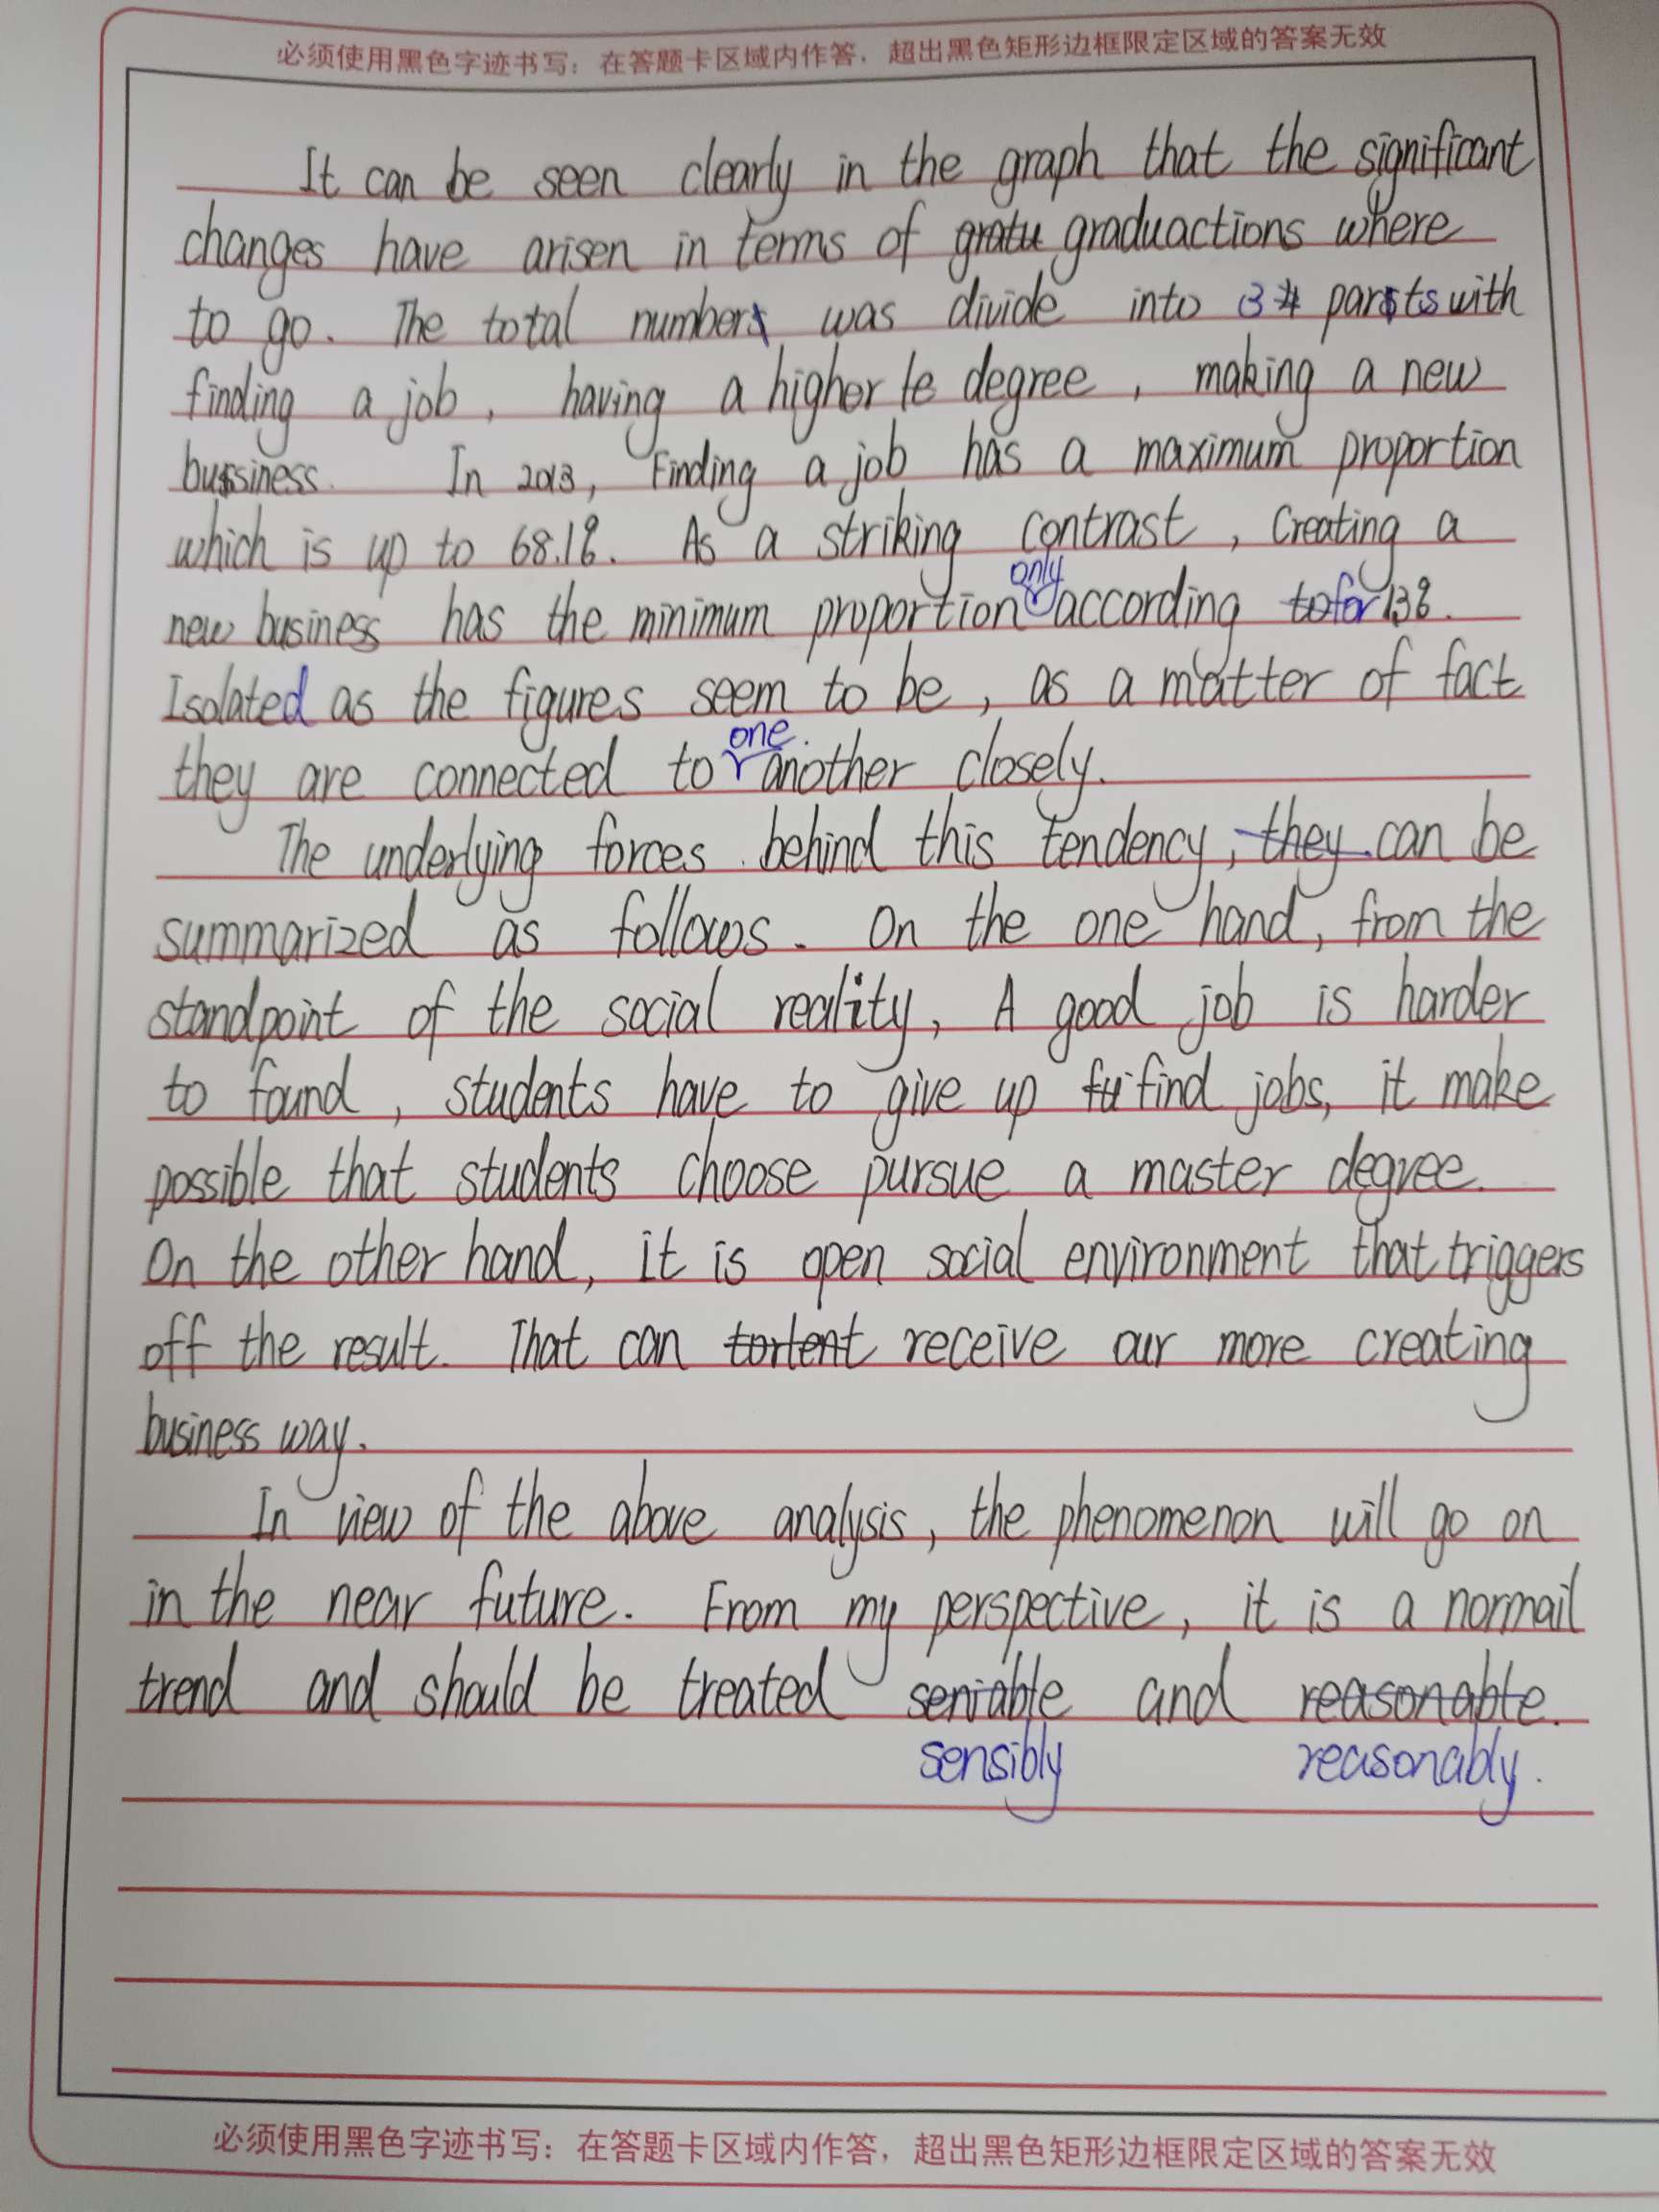 必须使用黑色字迹书写：在答题卡区域内作答，超出黑色矩形边框限定区域的答案无效
It can be seen clearly in the graph that the significant
changes have arisen in terms of gratu graduactions where
to go. The total number was divide into 3 parts with
finding a job, having a higher le degree, making a new
bussiness. In 2013, Finding a job has a maximum proportion
which is up to 68.1%. As a striking contrast, Creating a
new business has the minimum proportion only according to for 13%.
Isolated as the figures seem to be, as a matter of fact
they are connected to one another closely.
The underlying forces behind this tendency, they can be
summarized as follows. On the one hand, from the
standpoint of the social reality, A good job is harder
to found, students have to give up fu find jobs, it make
possible that students choose pursue a master degree.
On the other hand, it is open social environment that triggers
off the result. That can receive our more creating
business way.
In view of the above analysis, the phenomenon will go on
in the near future. From my perspective, it is a normail
trend and should be treated seniable and reasonable.
sensibly reasonably.
必须使用黑色字迹书写：在答题卡区域内作答，超出黑色矩形边框限定区域的答案无效